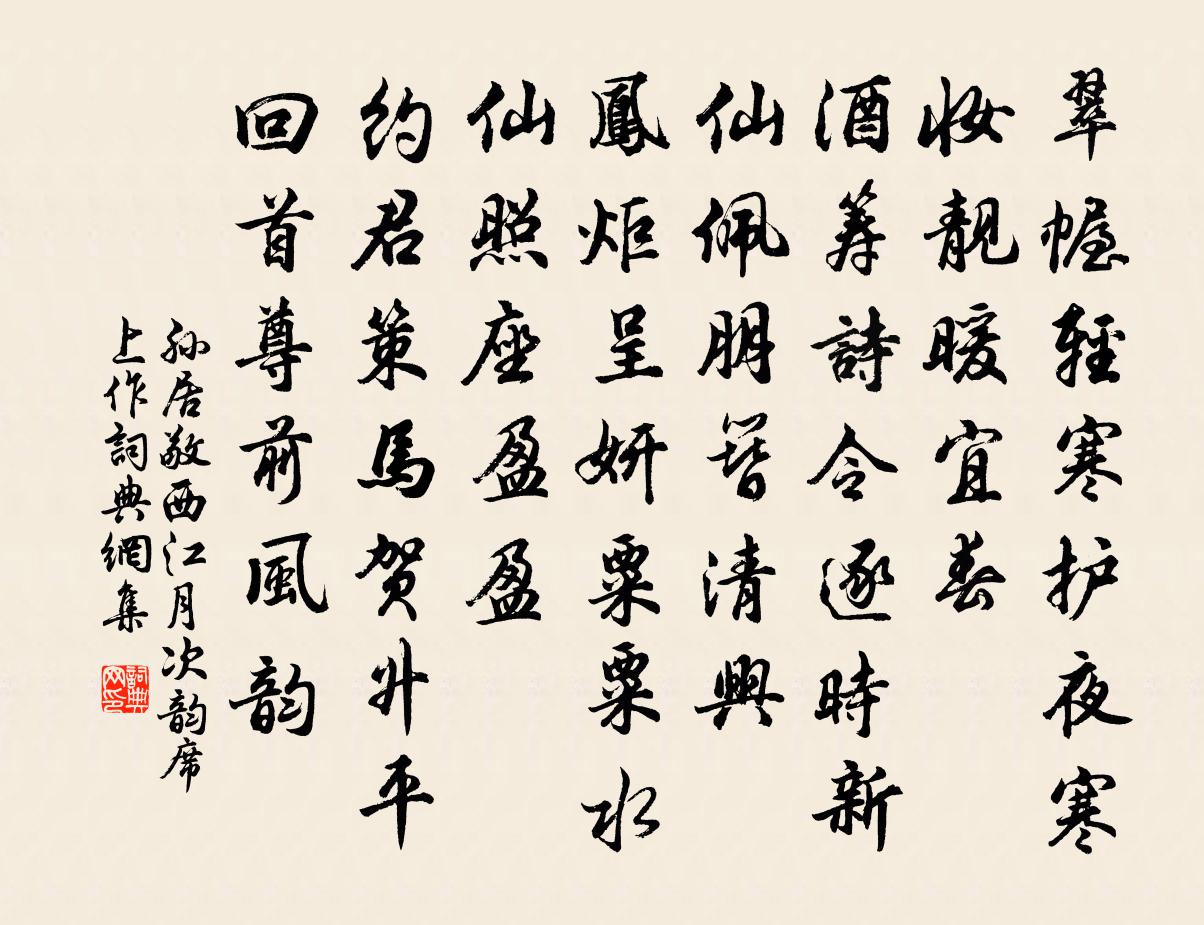 翠幄輕寒护夜寒
妆靚暖宜春
酒筹詩令逐時新
仙佩朋簪清興
鳳炬呈妍粟粟水
仙照座盈盈
约君策馬贺升平
回首尊前風韵
孙居敬西江月次韵席
上作詞典網集
詞典
网印